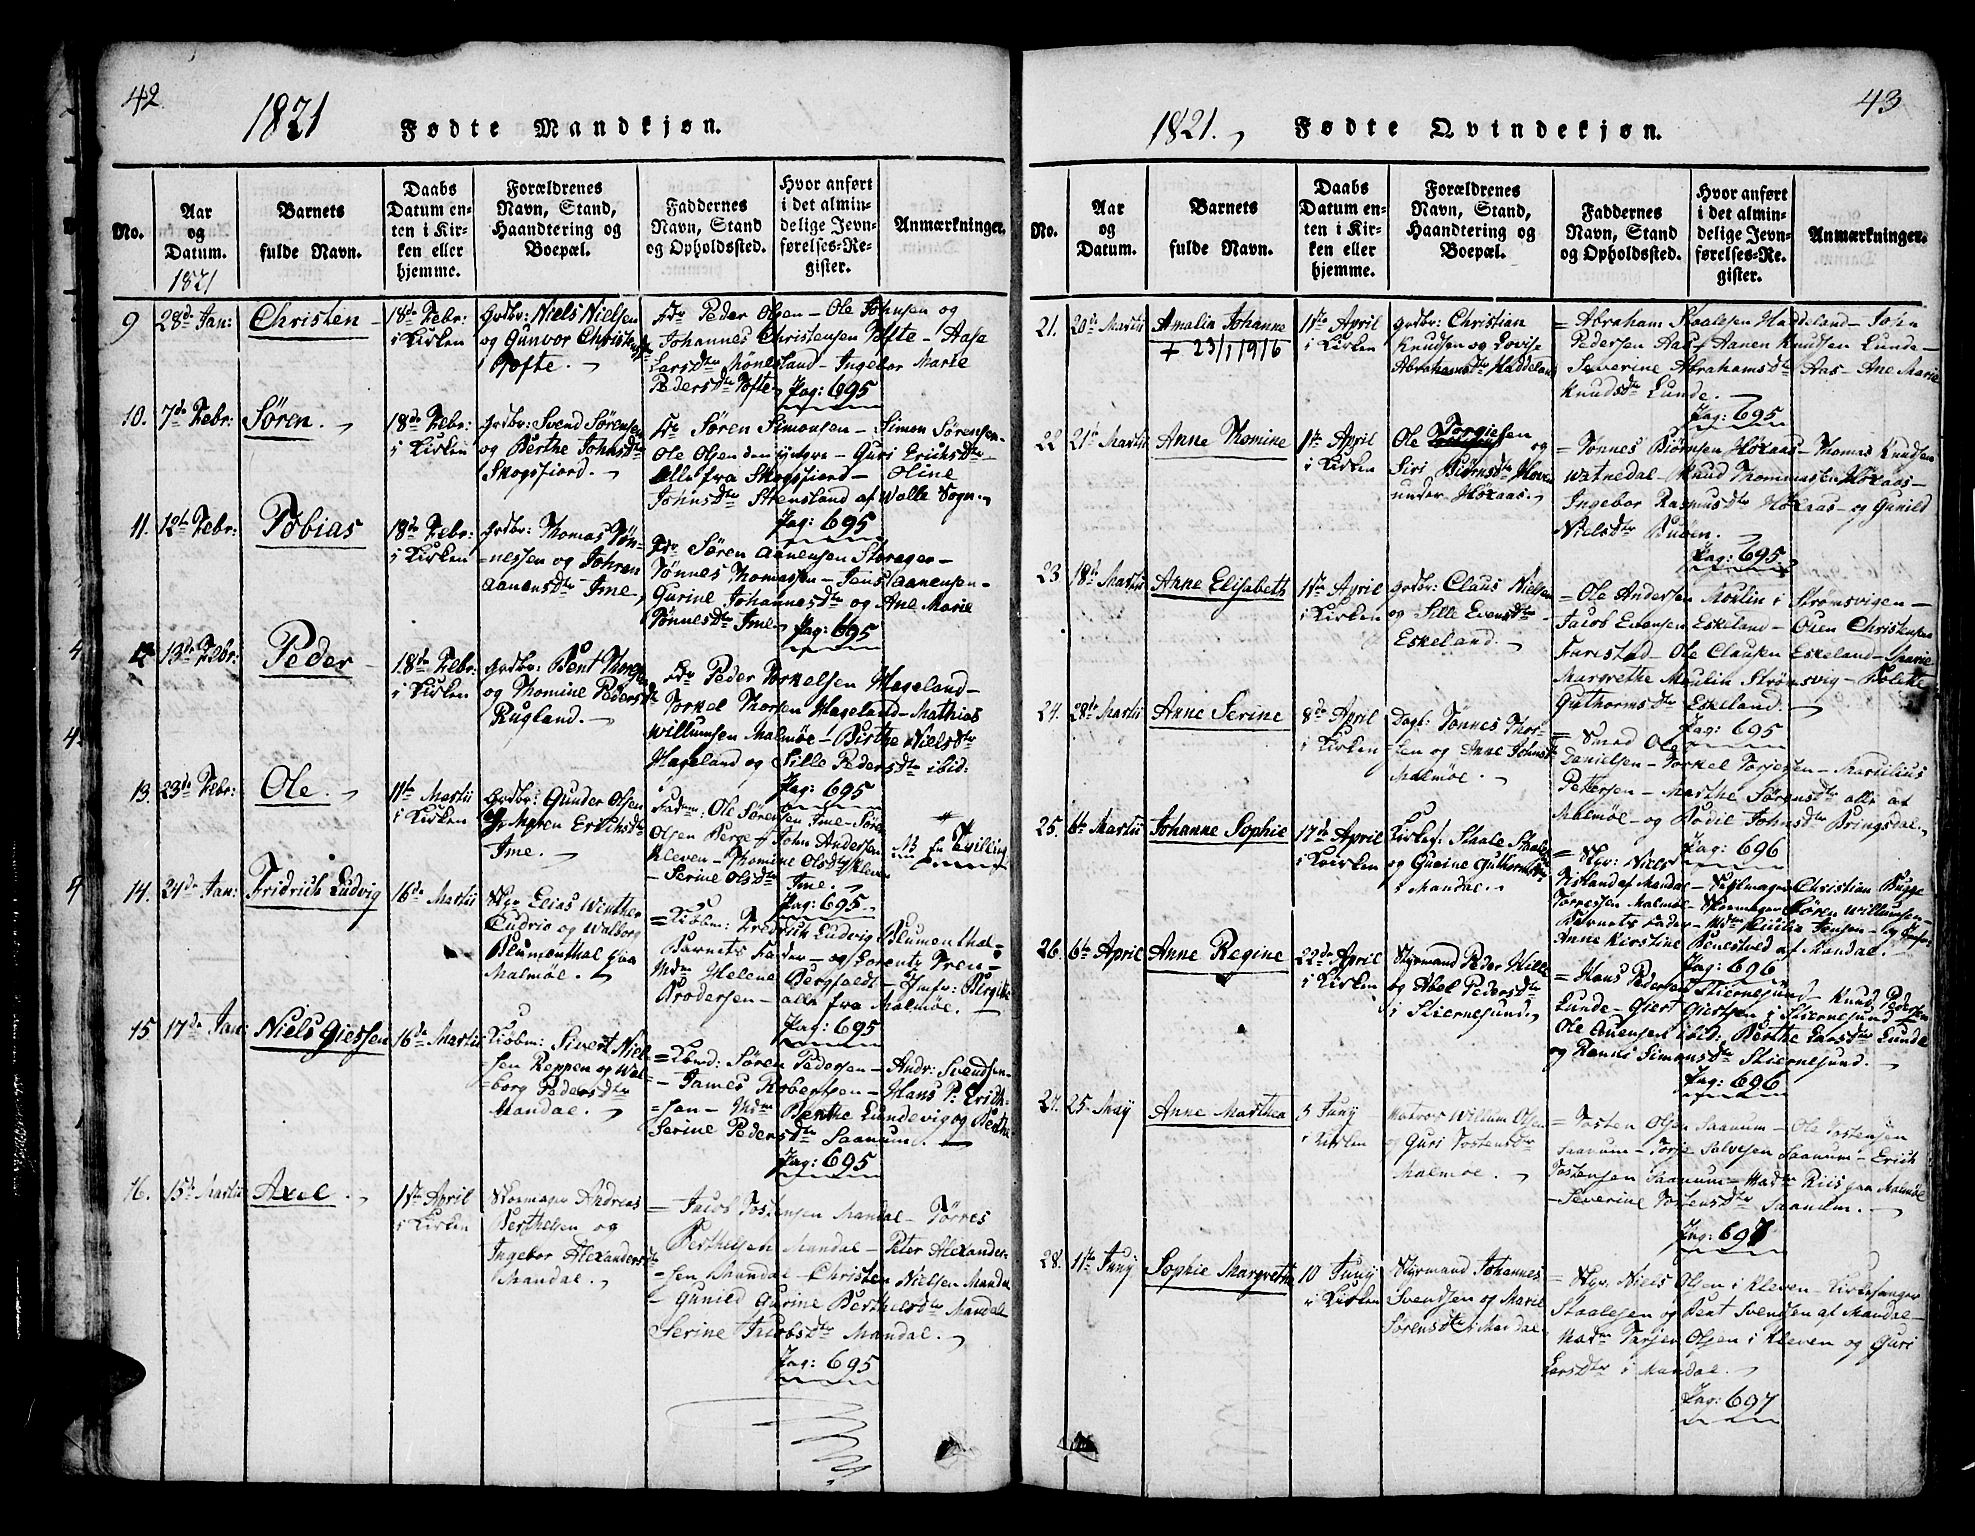 42
1821
Fødte Mandkjøn.
No.
Aar
og
Datum.
1821
Barnets
fulde Navn.
Daabs
Datum en-
ten i Kir-
ken eller
hjemme.
Forældrenes
Navn, Stand,
Haandtering og
Boepæl.
Faddernes
Navn, Stand
og Opholdssted.
Hvor anført
i det almin-
delige Jevn-
førelses-Re-
gister.
Anmærkninger.
9 28de Jan: Christen 18de Febr: i Kirken
Grdbr: Niels Nielsen
og Gunvor Christensdtr
Tofte.
Fdr Peder Olsen – Ole Johnsen og
Johannes Christensen Tofte – Aase
Larsdtr Hønesland – Ingebor Marie
Pedersdtr Tofte
Pag: 695
10. 7de Febr: Søren. 18de Febr: i Kirken
Grdbr: Svend Sørensen
og Berthe Johnsdtr
Skogsfiord.
Søren Simonsen – Simon Sørensen –
Ole Olsen den yngre – Guri Erichsdtr
alle fra Skogsfiord – Oline
Johnsdtr Stensland af Walle Sogn.
Pag: 695
11. 12te Febr: Tobias 18de Febr: i Kirken
Grdbr: Thomas Tøn-
nessen og Johren
Aanensdtr Ime
Fdr Søren Aanensen Storager –
Tønnes Thomassen – Jens Aanensen –
Gurine Johannesdtr og Ane Marie
Tønnesdtr Ime
Pag: 695
13de Febr: Peder 18de Febr: i Kirken
Grdbr: Bent Thorsen
og Thomine Pedersdtr
Rugland.
Fdr Peder Torkelsen Hageland –
Torkel Thorsen Hageland – Mathias
Willumsen Malmøe – Birthe Nielsdtr
Hageland og Sille Pedersdtr ibid:
Pag: 695
13. 23de Febr: Ole. 11te Martii i Kirken
Grdbr: Gunder Olsen
og Maren Erichsdtr
Ime.
Fadm: Ole Sørensen Ime – Søren
Olsen Berge – John Andersen
Kleven – Thomine Olsdtr Kleven
– Serine Olsdtr Ime.
Pag: 695
NB en Tvilling
14. 24de Jan: Fridrich Ludvig 16de Martii
Skpr Elias Winther
Ludvig og Walborg
Blumenthal
Malmøe.
= Kiøbm: Fredrich Ludvig Blumenthal –
Barnets Fader – og Lorentz
Mdm Helene Bergfaldt – Jmfr: Birgithe
Brodersen – alle fra Malmøe.
Pag: 695
15 17de Jan: Niels Giessen 16de Martii
Kiøbm: Sivert Niel-
sen Reppen og Wal-
borg Pedersdtr
Mandal.
Søren Pedersen – Andr: Svendsen –
– James Robertsen – Hans P: Erich-
sen – Mdm Berthe Lundevig og Berthe
Serine Pedersdtr Saanum.
Pag: 695
16. 15de Martii Axel. 1ste April i Kirken
Skomager Andreas
Berthelsen og
Ingebor Alexandersdtr
Mandal.
= Jacob Tostensen Mandal – Tørres
Berthelsen Mandal – Peter Alexander-
sen Mandal – Christen Nielsen Mandal
– Gunild Gurine Berthelsdtr Mandal
Serine Jacobsdtr Mandal.
Pag: 695
43
1821.
Fødte Qvindekjøn.
No.
Aar
og
Datum.
Barnets
fulde Navn.
Daabs
Datum en-
ten i Kir-
ken eller
hjemme.
Forældrenes
Navn, Stand,
Haandtering og
Boepæl.
Faddernes
Navn, Stand
og Opholdssted.
Hvor anført
i det almin-
delige Jevn-
førelses-Re-
gister.
Anmærkninger.
21. 20de Martii Amalia Johanne
+ 23/1 1916
1ste April i Kirken
Grdbr: Christian
Knudsen og Lovise
Abrahamsdtr Haddeland
= Abraham Staalesen Haddeland – John
Pedersen Aas – Aanen Knudsen Lunde –
Severine Abrahamsdtr Aas – Ane Marie
Knudsdtr Lunde.
Pag: 695
22 21de Martii Anne Thomine 1ste April i Kirken
Ole Torgiesen og
Siri Biørnsdtr
under Høkaas.
= Tønnes Biørnsen Høkaas – Thomas Knudsen
Watnedal – Knud Thommassen Høkaas –
Ingebor Rasmusdtr Høkaas – og Gunild
Nielsdtr Buøen.
Pag: 695
23 18de Martii Anne Elisabeth 1ste April i Kirken
Grdbr: Claus Nielsen
og Sille Evensdtr
Eskeland.
= Ole Andersen Moulin i Strømsvigen –
Jacob Evensen Eskeland – Osen Christensen
Furestad – Ole Clausen Eskeland – Marie
Margrethe Moulin Strømsvig – Bolette
Guthormsdtr Eskeland.
Pag: 695
24. 28de Martii Anne Serine 8de April i Kirken
Dagl: Tønnes Thor-
sen og Anne Johnsdtr
Malmøe.
= Smed Ole
Danielsen – Torkel Torjesen – Marsilius
Pettersen – Marthe Sørensdtr alle af
Malmøe – og Bodil Johnsdtr Bringsdal.
Pag: 696
25. 6te Martii Johanne Sophie 17de April i Kirken
Kirkes: Staale Staalesen
og Gurine Guthormsdtr
i Mandal.
= Skpr: Niels
Fisland af Mandal – Seylmager Christian Bugge
Torressen Malmøe – Skomager Søren Willumsen –
Barnets Fader – Mdm Emilia Jensen – og Jmfr:
Anne Kirstine Benestved af Mandal.
Pag: 696
26. 6te April Anne Regine 22de April i Kirken
Styrmand Peder Hille
og Abel Pedersdtr
i Stiernesund.
= Hans Pedersen Stiernesund – Knud Pedersen
Lunde – Giert Giertsen i Stiernesund –
Ole Ouensen ibid: Berthe Larsdtr Lunde
og Ranni Simonsdtr Stiernesund.
Pag: 696
27. 25 May Anne Marthea 3 Juny i Kirken
Matros Willum Olsen
og Guri Tostensdtr
Malmøe.
= Tosten Olsen Saanum – Ole Tostensen
Saanum – Torje Salvesen Saanum – Erich
Tostensen Saanum – Madm Riis paa Malmøe
– Severine Tostensdtr Saanum.
Pag: 697
28. 11te Juny Sophie Margrethe 10 Juny i Kirken
Styrmand Johannes
Svendsen og Marie
Sørensdtr i Mandal
= Skpr. Niels Olsen i Kleven – Kirkesanger
Staalesen og Bent Svendsen af Mandal –
Madm Tarjer Olsen i Kleven og Guri
Larsdtr i Mandal.
Pag: 697